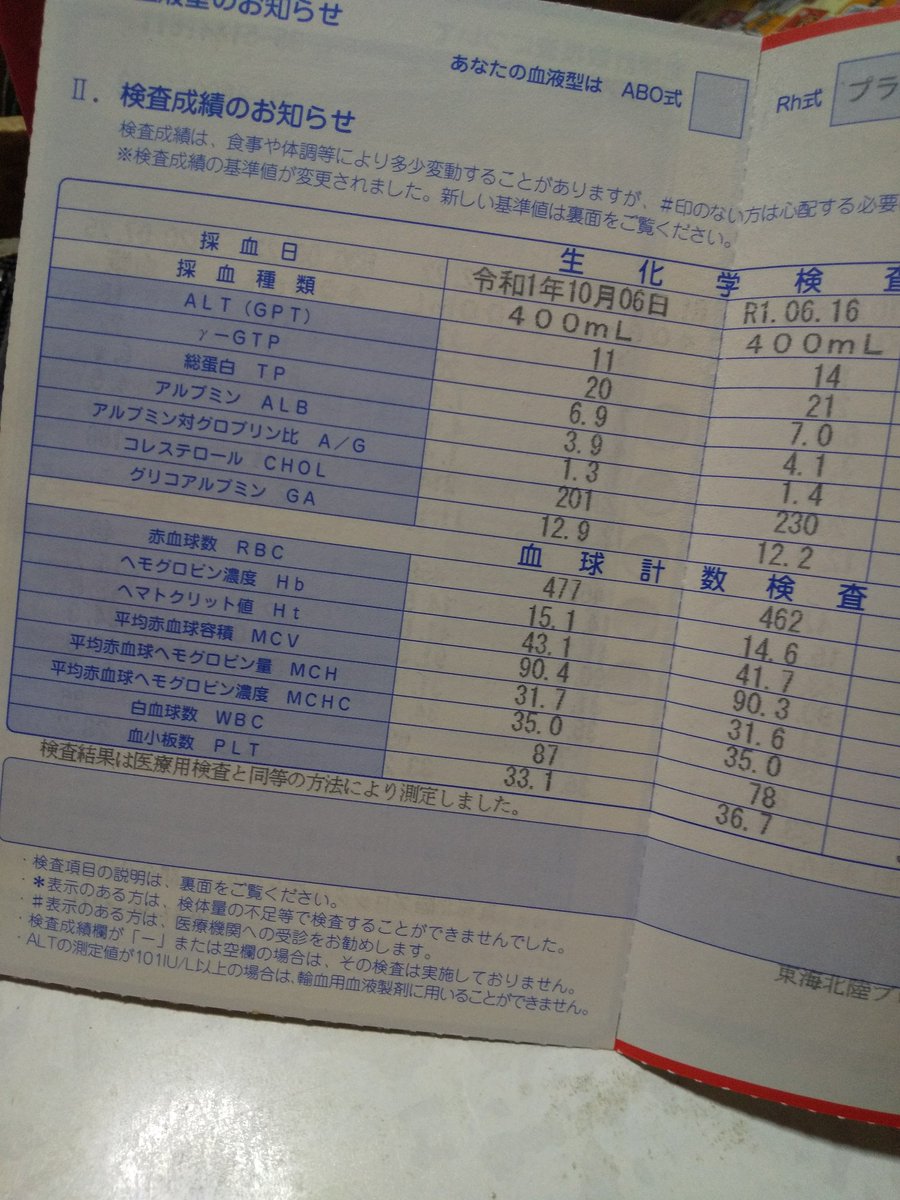 液型のお知らせ
あなたの血液型は ABO式
Rh式 プラ
Ⅱ. 検査成績のお知らせ
検査成績は、食事や体調等により多少変動することがありますが、#印のない方は心配する必要
※検査成績の基準値が変更されました。新しい基準値は裏面をご覧ください。
生化学検査
採血日 令和1年10月06日 R1.06.16
採血種類 400mL 400mL
ALT(GPT) 11 14
γ-GTP 20 21
総蛋白 TP 6.9 7.0
アルブミン ALB 3.9 4.1
アルブミン対グロブリン比 A/G 1.3 1.4
コレステロール CHOL 201 230
グリコアルブミン GA 12.9 12.2
血球計数検査
赤血球数 RBC 477 462
ヘモグロビン濃度 Hb 15.1 14.6
ヘマトクリット値 Ht 43.1 41.7
平均赤血球容積 MCV 90.4 90.3
平均赤血球ヘモグロビン量 MCH 31.7 31.6
平均赤血球ヘモグロビン濃度 MCHC 35.0 35.0
白血球数 WBC 87 78
血小板数 PLT 33.1 36.7
検査結果は医療用検査と同等の方法により測定しました。
・検査項目の説明は、裏面をご覧ください。
・*表示のある方は、検体量の不足等で検査することができませんでした。
・#表示のある方は、医療機関への受診をお勧めします。
・検査成績欄が「-」または空欄の場合は、その検査は実施しておりません。
・ALTの測定値が101IU/L以上の場合は、輸血用血液製剤に用いることができません。
東海北陸ブ